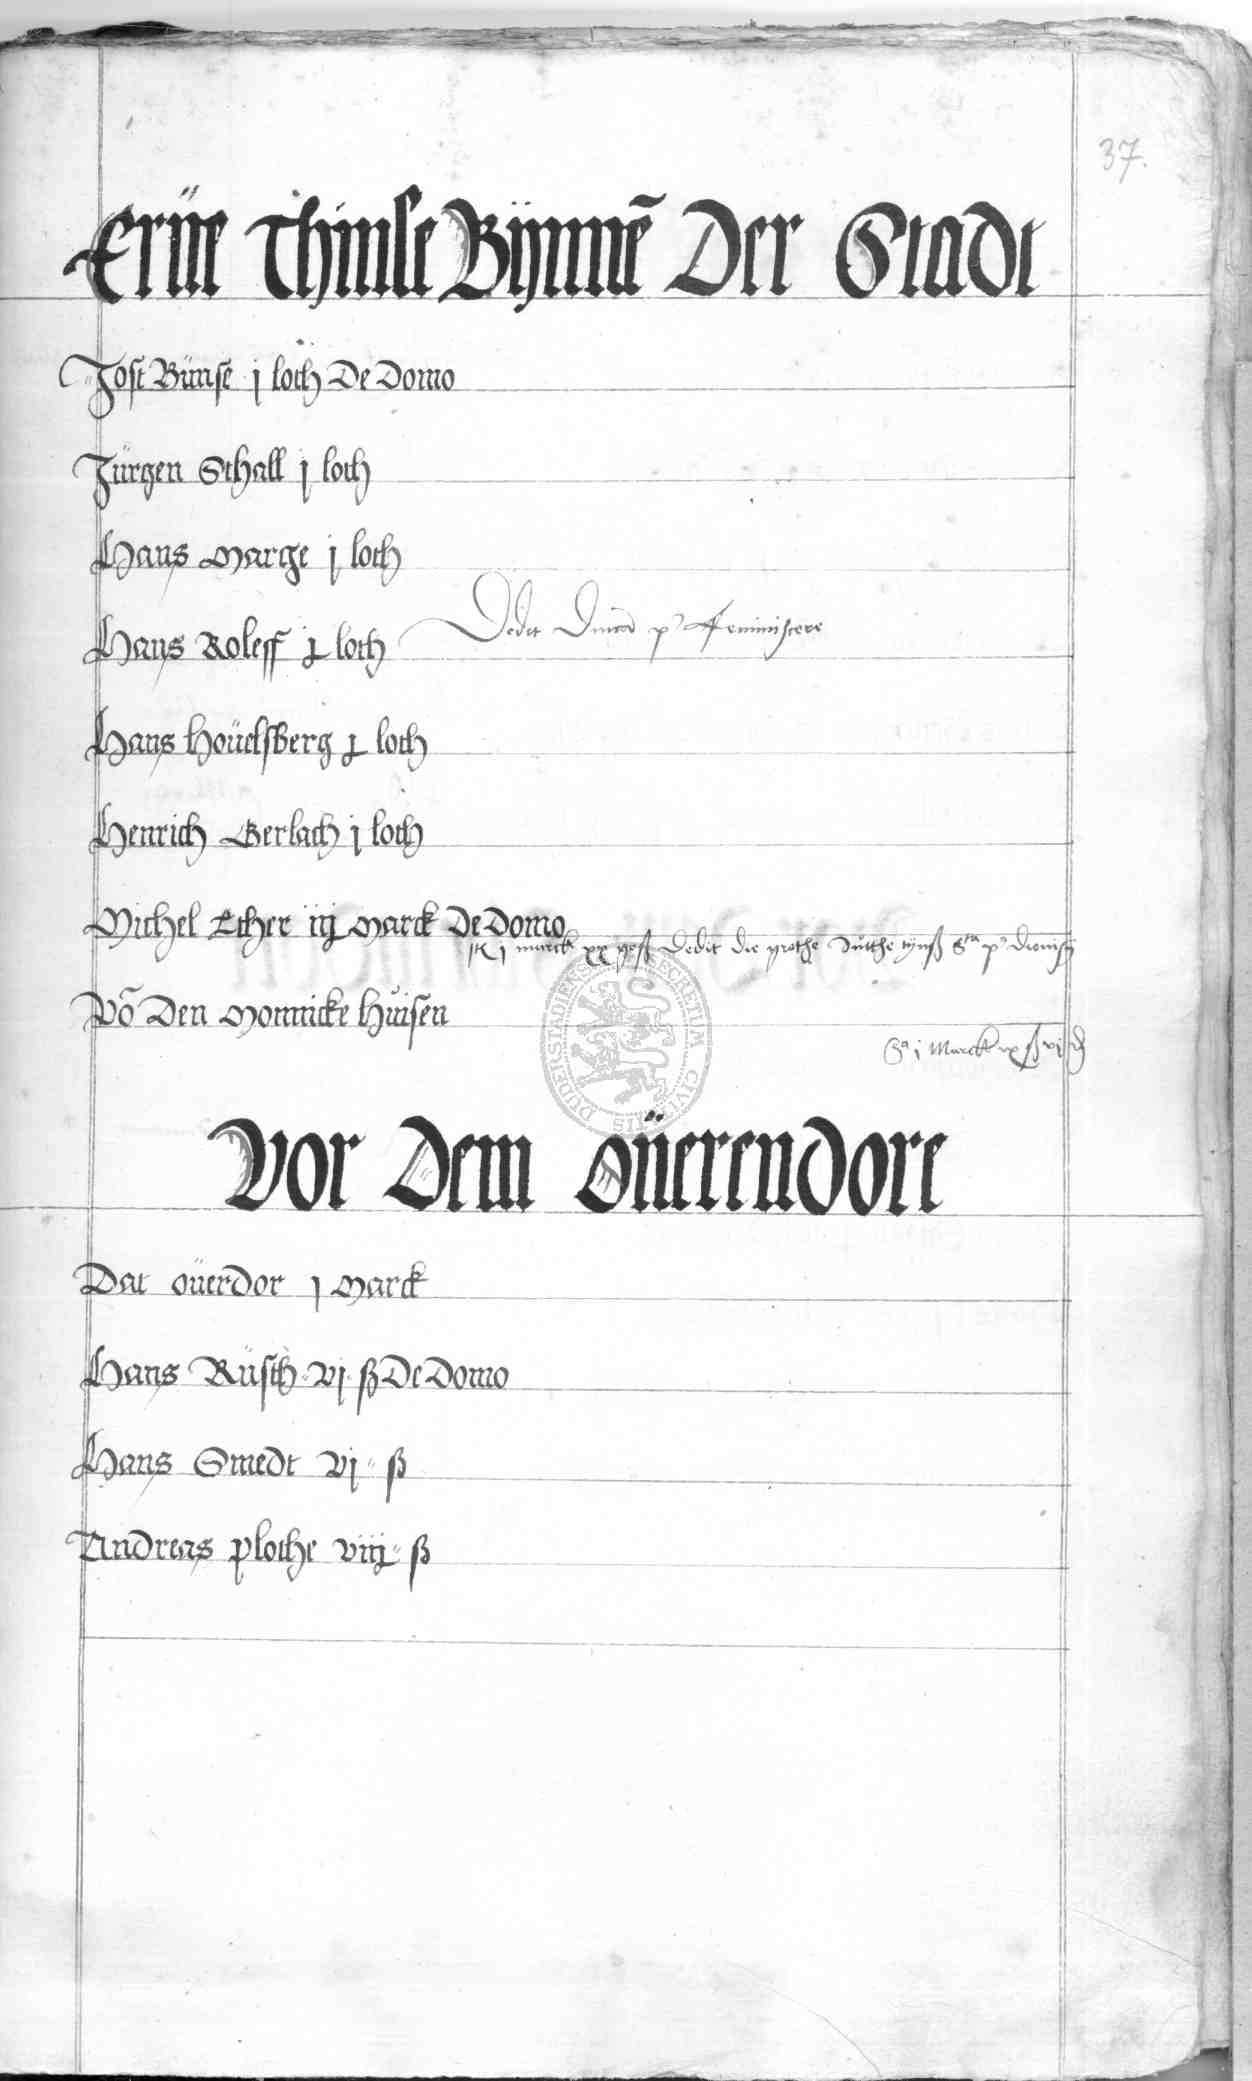 37.
Erue Thinse Bynnē Der Stadt
Jost Bünse j loth De Domo
Jürgen Sthall j loth
Hans Marge j loth
Hans Roleff j loth Dedit p' Reminiscere
Hans Höuelsberg j loth
Henrich Gerlach j loth
Michel Ether iij Marck De Domo
j marck xx gß Dedit die grothe Dutthe tynß p' Dionisij
Vō Den Monnicke Hüisen
Sa j Marck vj
SECRETUM CIVITATIS DUDERSTADIENSIS
Vor Dem öuerendore
Dat öuerdor j Marck
Hans Rüsth vj ß De Domo
Hans Smedt vj ß
Andreas plothe viij ß